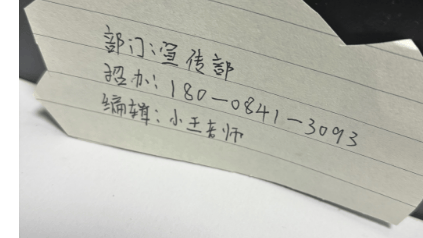 部门:宣传部
招办:180-0841-3093
编辑:小王老师